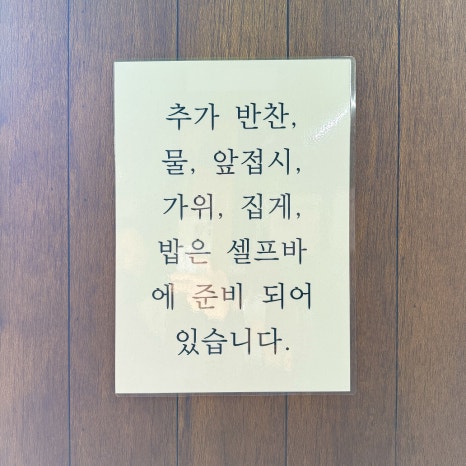 추가 반찬,
물, 앞접시,
가위, 집게,
밥은 셀프바
에 준비 되어
있습니다.